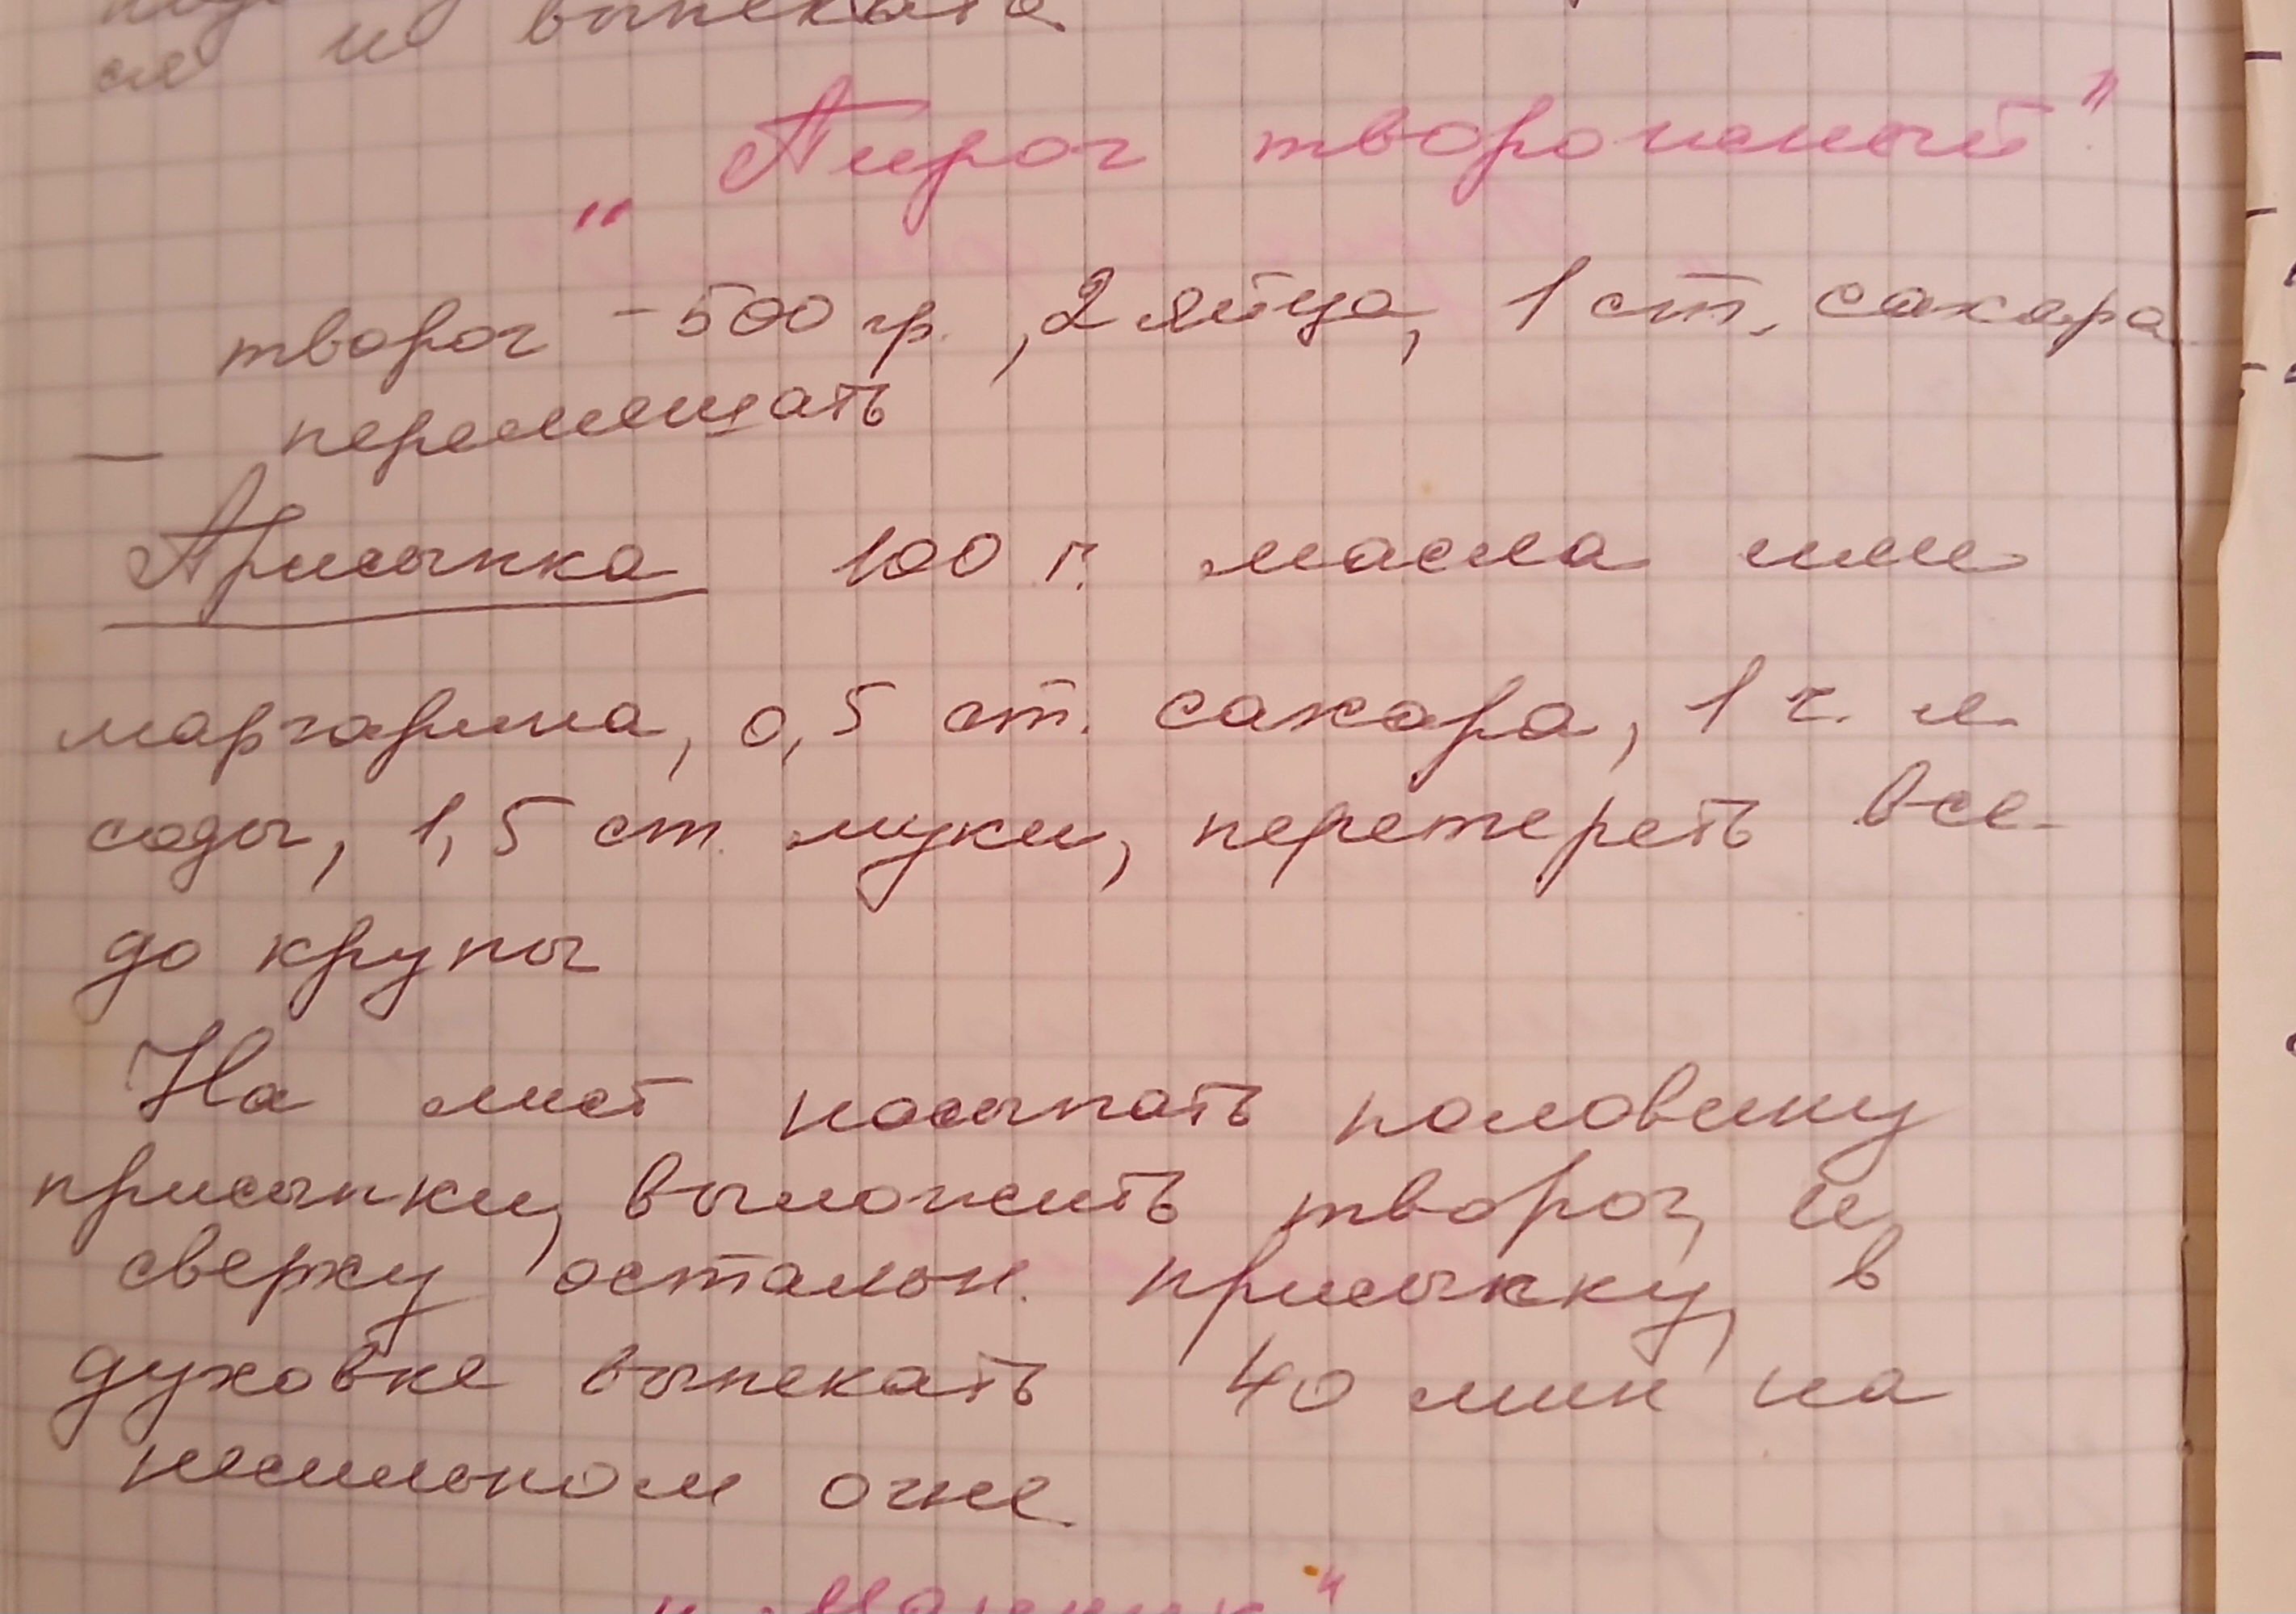 ся и выпекать
„Пирог творожный"
творог - 500 гр., 2 яйца, 1 ст. сахара
— перемешать
Присыпка 100 г. масла или
маргарина, 0,5 ст. сахара, 1 ч. л
соды, 1,5 ст. муки, перетереть все
до крупы
На лист насыпать половину
присыпки, выложить творог, и
сверху остальн. присыпку, в
духовке выпекать 40 мин на
несильном огне
„Манник"